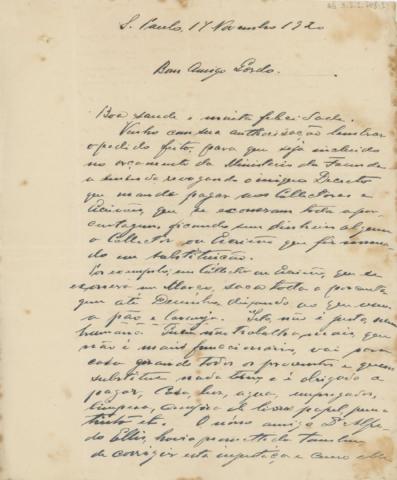 S. Paulo, 14 Novembro 1920
Bom Amigo Gordo.
Boa saude e muita felicidade.
Venho com sua authorisação lembrar
o pedido feito, para que seja incluido
no orçamento do Ministerio da Fazenda
a emenda revogando o iniquo Decreto
que manda pagar aos Collectores e
Escrivães, que se exoneram toda a por-
centagem, ficando sem dinheiro algum
o Collector ou Escrivão que for nomea-
do em substituição.
Por exemplo, um Collector ou Escrivão, que se
exonera em Março, saca toda a porcenta
gem até Dezembro, deixando ao que vem
a pão e laranja. Isto não é justo nem
humano. Quem não trabalha mais, que
não é mais funccionario, vai para
casa gosando todos os proventos e quem
substitue nada tem e é obrigado a
pagar, casa, luz, agua, empregados,
limpeza, compra de livros papel, penna
tinta etc. O nosso amigo Dr Alfre-
do Ellis, havia promettido tambem
de corrigir esta injustiça e como elle